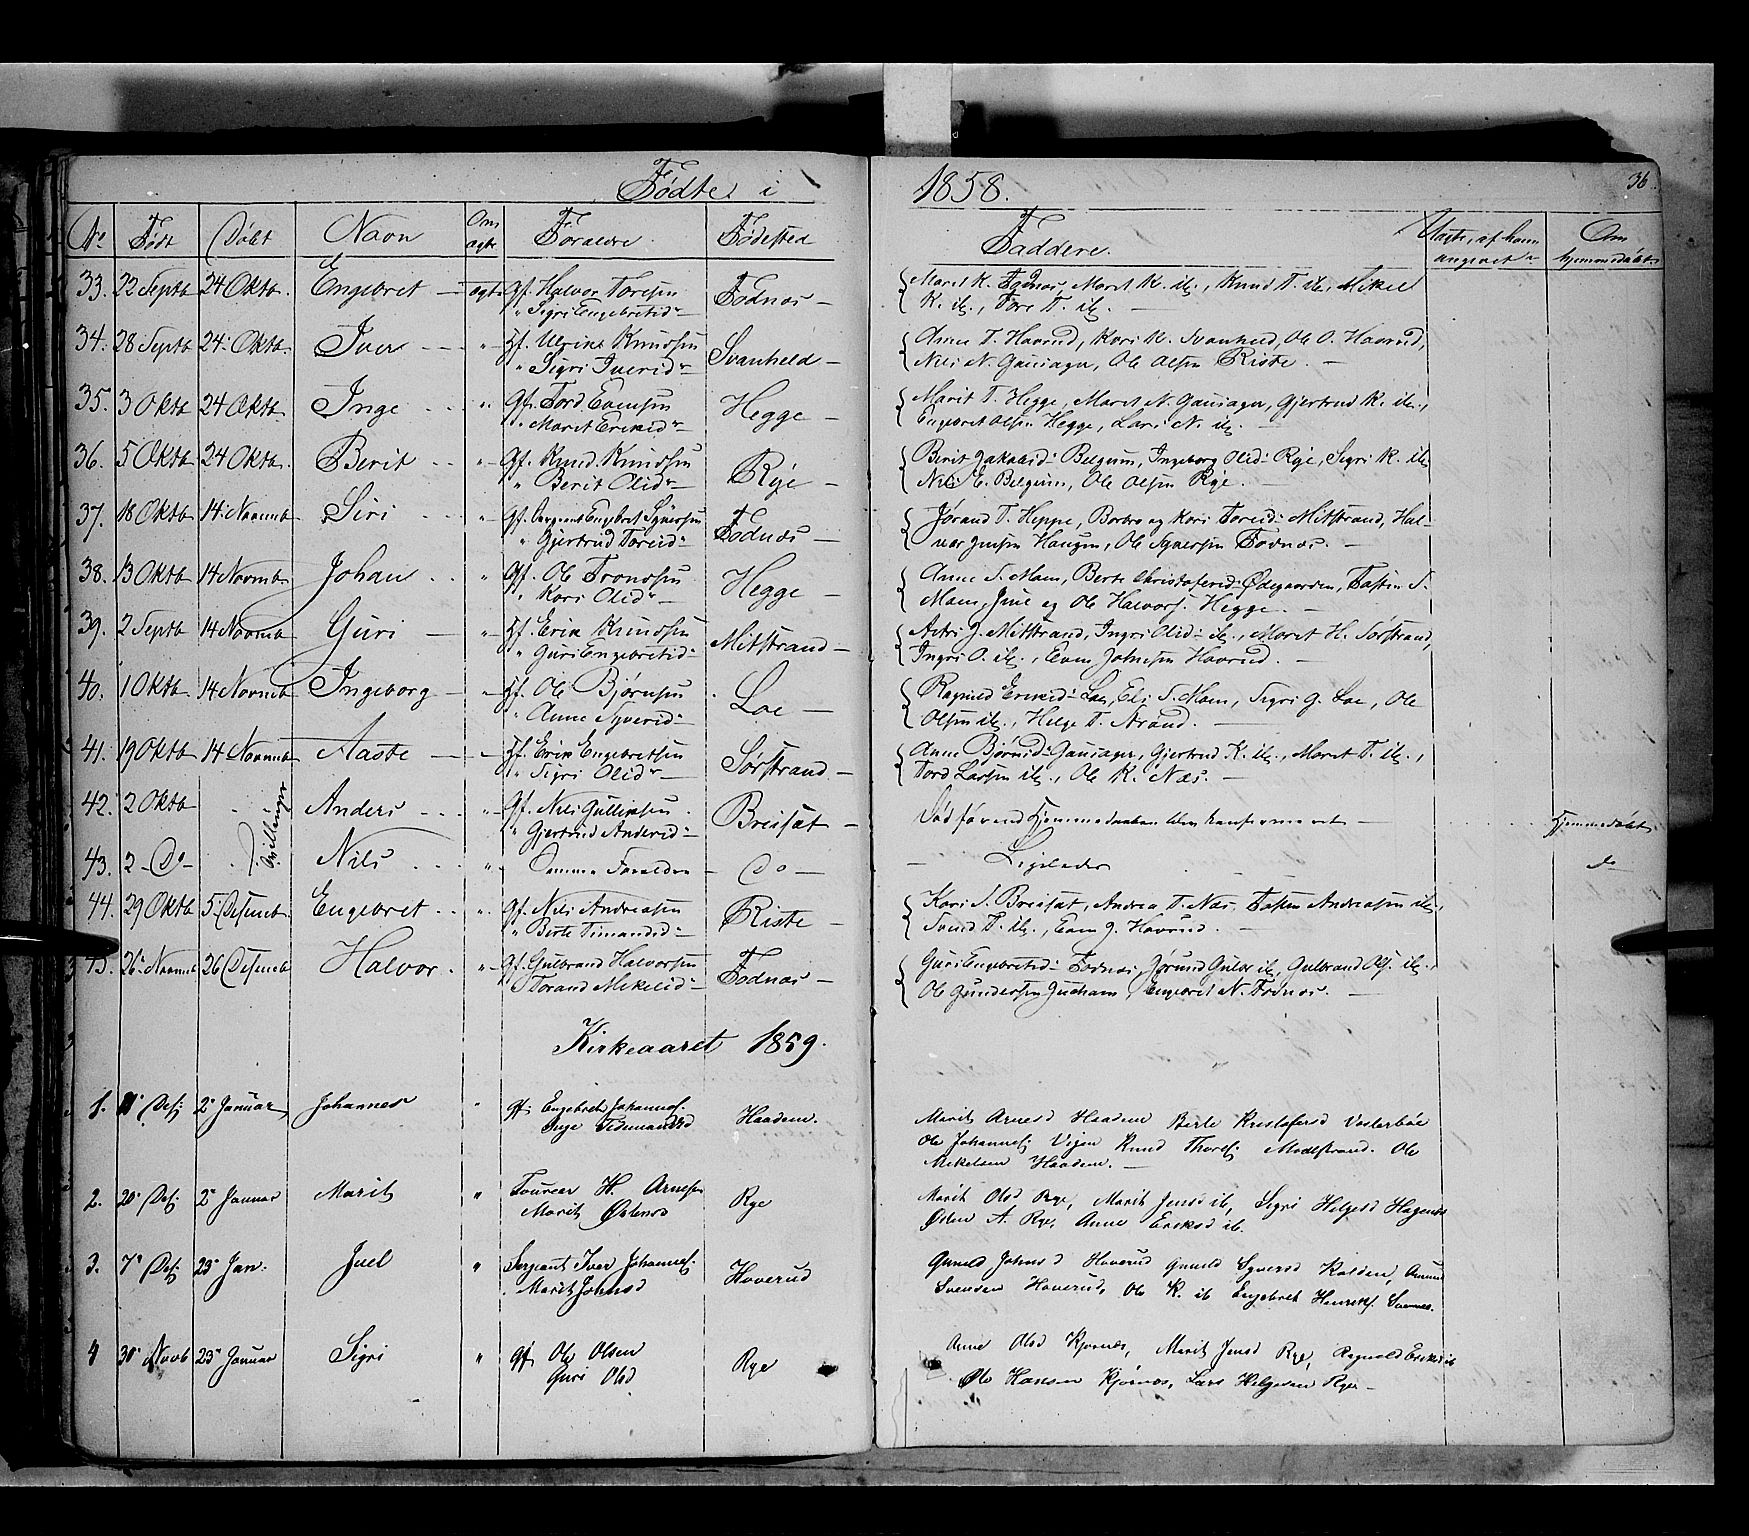 Fødte i 1858.
36.
No Født Døbt Navn Om ægte Forældre Fødested Faddere. Om hjemmedøbt
33. 22 Septb 24 Oktb. Engebret — ægte Gf. Halvor Toresen Fodnæs —
" Sigri Engebretsd.
Marit K. Fodnæs, Marit K. ib., Knud T. ib., Mikel
K. ib., Tore T. ib. —
34. 28 Septb 24 Oktb. Iver " Hf. Ulrik Knudsen Svanheld —
" Sigri Iversd.
Anne T. Havrud, Kari K. Svanheld, Ole O. Havrud,
Nils N. Gausager, Ole Olsen Riste. —
35. 3 Oktb 24 Oktb Inge " Gf. Tord Evensen Hegge —
" Marit Eriksd.
Marit T. Hegge, Marit N. Gausager, Gjertrud K. ib.,
Engebret Olsen Hegge, Lars N. ib.
36. 5 Oktb 24 Oktb. Berit " Gf. Knud Knudsen Rye —
" Berit Olsd.
Berit Jakobsd. Belgum, Ingeborg Olsd. Rye, Sigri K. ib.
Nils E. Belgum, Ole Olsen Rye.
37. 18 Oktb 14 Novemb Siri " Gf. Sergeant Engebret Syversen Fodnæs —
" Gjertrud Toresd.
Jørand T. Heppe, Barbro og Kari Toresd. Mitstrand, Hal-
vor Jensen Haugen, Ole Syversen Fodnæs. —
38. 13 Oktb 14 Novmb Johan " Gf. Ole Trondsen Hegge —
" Kari Olsd. —
Anne T. Moen, Berte Christofersd. Ødegaarden, Tosten T.
Moen, Jens og Ole Halvors. Hegge. —
39. 2 Septb 14 Novmb Guri — " Hf. Erik Knudsen Mitstrand —
" Guri Engebretsd.
Astri J. Mitstrand, Ingri Olsd. ib., Marit H. Sørstrand,
Ingri O. ib., Even Johnsen Havrud. —
40. 1 Oktb. 14 Novmb Ingeborg — " Hf. Ole Bjørnsen Loe —
" Anne Syversd.
Ragnild Eriksd. Loe, Eli T. Moen, Sigri J. Loe, Ole
Olsen ib., Helge T. Strand. —
41. 19 Oktb 14 Novemb Aaste — " Hf. Erik Engebretsen Sørstrand —
" Sigri Olsd. —
Anne Bjørnsd. Gausager, Gjertrud K. ib., Marit T. ib.,
Tord Larsen ib., Ole K. Næs. —
42. 2 Oktb Tvillinger Anders " Gf. Nils Gulliksen Breisæt —
" Gjertrud Andersd.
Død førend Hjemmedaaben blev konfirmeret — Hjemmedøbt
43. 2 Do Nils " Samme Forældre — Do — — Ligeledes do
44. 29 Oktb 5 Desemb. Engebret " Gf. Nils Andreasen Riste —
" Berte Timansd.
Kari S. Breisæt, Andrea T. Næs, Tosten Andreasen ib.,
Svend T. ib., Even J. Havrud. —
45. 26 Novmb 26 Desemb Halvor " Gf. Gulbrand Halvorsen Fodnæs —
Torand Mikelsd.
Guri Engebretsd. Fodnæs, Jørund Gulbr ib., Gulbrand Ols. ib.,
Ole Gundersen Judheim, Engebret N. Fodnæs. —
Kirkeaaret 1859.
1. 11 Des; 2 Januar Johannes " Gf; Engebret Johannes. Haadem.
Inge Tidemandsd
Marit Arnesd Haadem Berte Kristofersd Vesterbøe
Ole Johannes; Vigen Knud Thores; Midtstrand. Ole
Mikelsen Haadem. —
2. 20 Des; 2 Januar Marit " Tourear H. Arnesen Rye
Marit Østensd
Marit Olsd Rye, Marit Jensd ib, Sigri Helgesd Hagenæs
Østen A. Rye, Anne Eriksd ib.
3. 7 Des; 23 Jan. Juel " Sergeant Iver Johannes. Hoverud
Marit Johnsd
Gunild Johnsd Hoverud Gunild Syversd Kolden, Amund
Svendsen Hoverud, Ole K. ib Engebret Henriks.
4 30 Novb 23 Januar Sigri " Gf; Ole Olsen Rye
Guri Olsd
Anne Olsd Kjørnæs, Marit Jensd Rye, Ragnild Eriksd ib
Ole Hansen Kjørnæs, Lars Helgesen Rye —